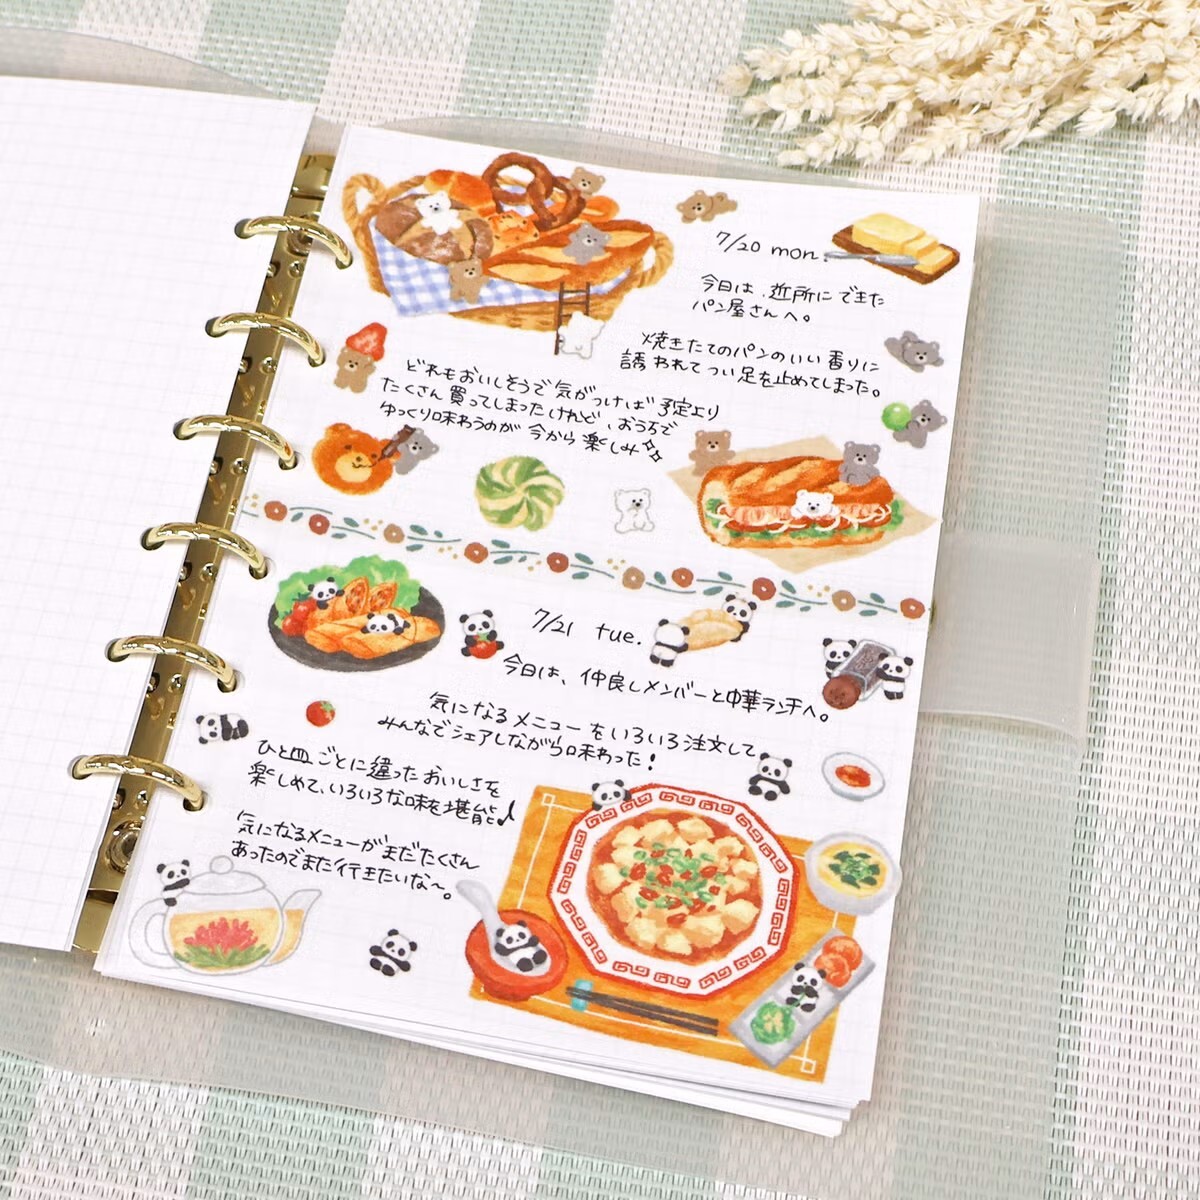 7/20 mon.
今日は、近所にできた
パン屋さんへ。
焼きたてのパンのいい香りに
誘われてつい足を止めてしまった。
どれもおいしそうで気がつけば予定より
たくさん買ってしまったけれど、おうちで
ゆっくり味わうのが今から楽しみ✨
7/21 tue.
今日は、仲良しメンバーと中華ランチへ。
気になるメニューをいろいろ注文して
みんなでシェアしながら味わった!
ひと皿ごとに違ったおいしさを
楽しめて、いろいろな味を堪能♪
気になるメニューがまだたくさん
あったのでまた行きたいな〜。